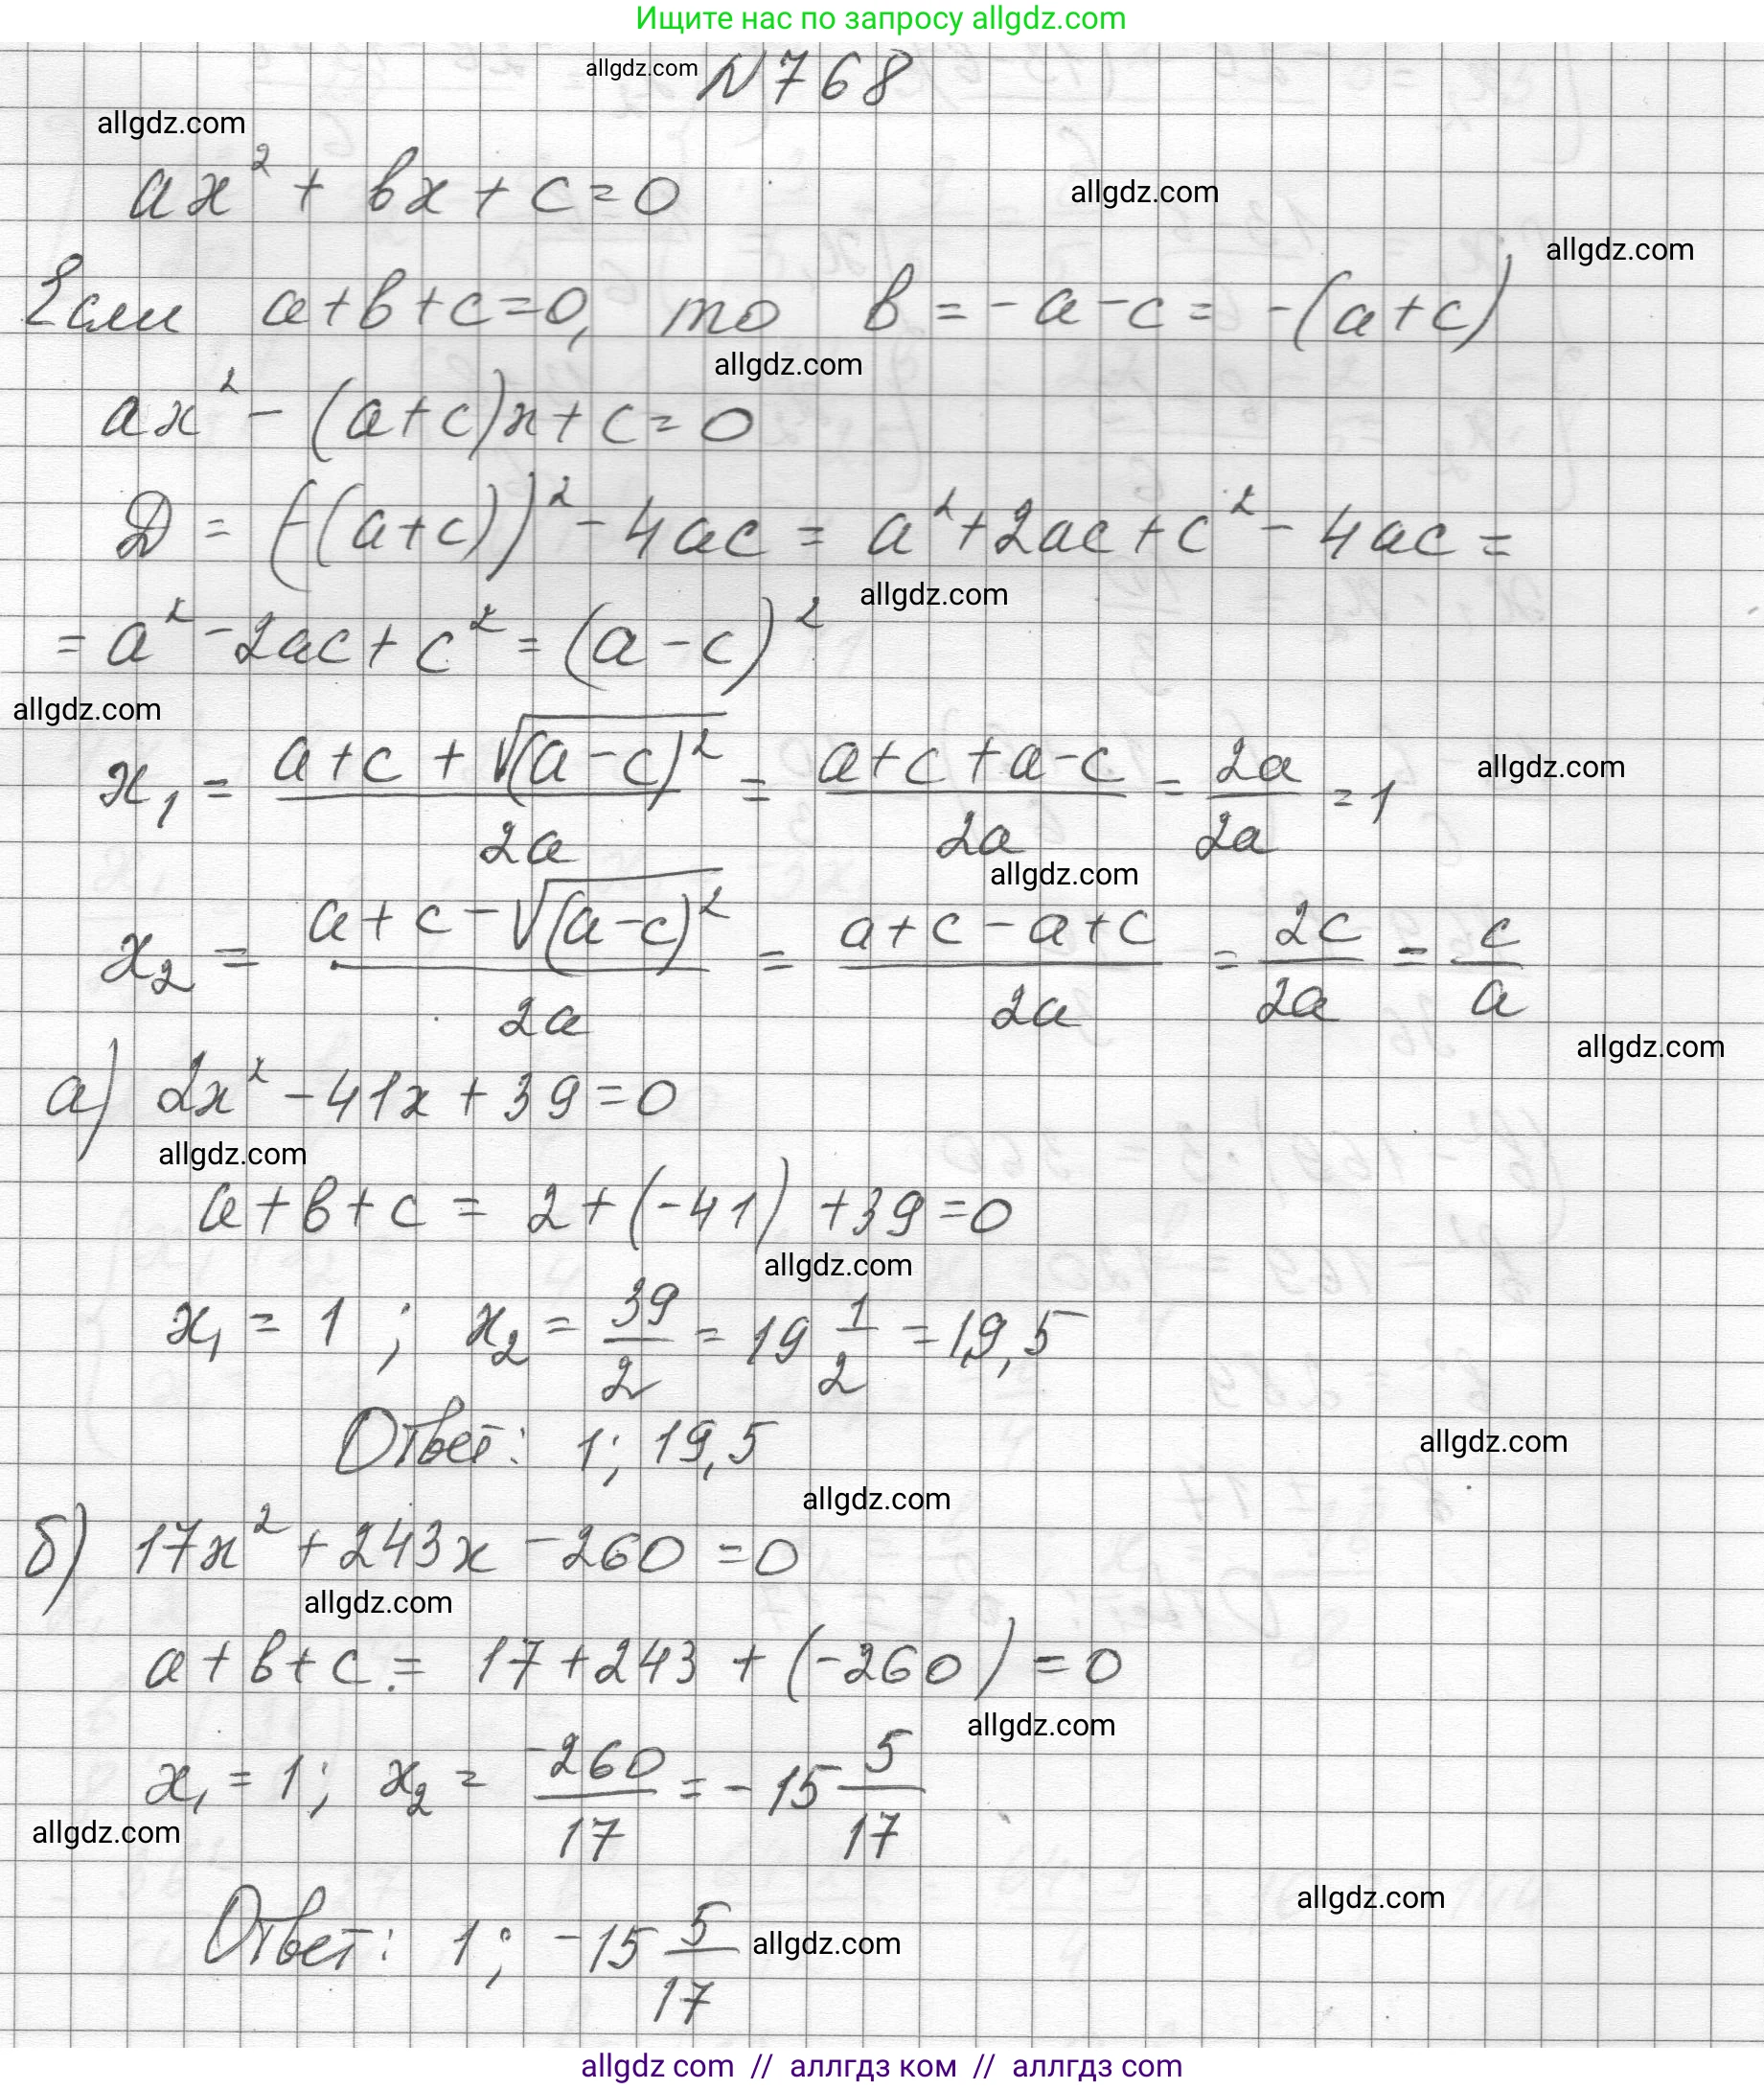 Ищите нас по запросу allgdz.com
allgdz.com N 768
allgdz.com
ax² + bx + c = 0
allgdz.com
allgdz.com
Если a+b+c=0, то b = -a-c = -(a+c)
allgdz.com
ax² - (a+c)x + c = 0
D = (-(a+c))² - 4ac = a² + 2ac + c² - 4ac =
allgdz.com
= a² - 2ac + c² = (a-c)²
allgdz.com
x₁ = (a+c + √(a-c)²)/2a = (a+c+a-c)/2a = 2a/2a = 1
allgdz.com
allgdz.com
x₂ = (a+c - √(a-c)²)/2a = (a+c-a+c)/2a = 2c/2a = c/a
allgdz.com
а) 2x² - 41x + 39 = 0
allgdz.com
a+b+c = 2+(-41)+39=0
allgdz.com
x₁ = 1 ; x₂ = 39/2 = 19 1/2 = 19,5
Ответ: 1; 19,5
allgdz.com
allgdz.com
б) 17x² + 243x - 260 = 0
allgdz.com
a+b+c = 17+243+(-260) = 0
allgdz.com
x₁ = 1; x₂ = -260/17 = -15 5/17
allgdz.com
allgdz.com
Ответ: 1; -15 5/17 allgdz.com
allgdz com // аллгдз ком // аллгдз com